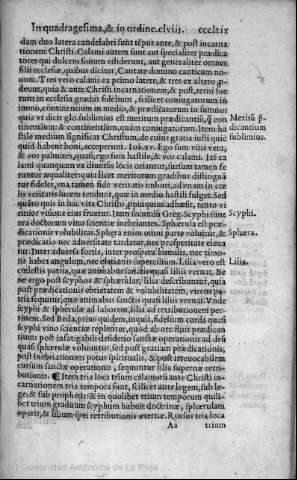 In quadragesima, & in ordine. clviij. ccclxix
dam duo latera candelabri sunt tẽpus ante, & post incarna
tionem Christi. Calami autem sunt aut specialiter prædica
tores qui dulcem sonum ediderunt, aut generaliter omnes
filii ecclesiæ, quibus dicitur, Cantate domino canticum no
uum. Tres vero calami ex primo latere, & tres ex altero p̃
deunt, quia & ante Christi incarnationem, & post, terni fue
runt in ecclesia gradus fidelium, scilicet coniugatorum in
immo, continentium in medio, & prædicatorum in summo
quia vt dicit glo. sublimius est meritum prædicantiũ, q̃
continentium & continentiũ, quàm coniugatorum. Item ha
stile medium significat Christum, de cuius gratia iusti quic
quid habent boni, acceperunt. Ioã. xv. Ego sum vitis vera,
& vos palmites, quasi, ego sum hastile, & vos calami. Item cã
lami quanquam ex diuersis locis oriantur, sursum tamen fe
runtur æqualiter, quia licet meritorum gradibus distinguã
tur fideles, vna tamen fide veritatis imbuti, ad vnam in cœ
lis veritatis lucem tendunt, quæ in medio hastili fulget. Sed
quãto quis in hac vita Christo, p̃pinquius adhæsit, tanto vi
cinior visione eius fruetur. Item secundũ Greg. Scyphi sunt
ora doctorum vino scientiæ inebriantes. Sphærula est prædi
cationis volubilitas. Sphera enim omni parte voluitur, &
prædicatio nec aduersitate tardatur, nec prosperitate eleua
tur. Inter aduersa fortis, inter prospera humilis, nec timo-
ris habet angulum, nec elationis superciliũ. Lilia vero est
cœlestis patria, quæ animabus sanctis quasi liliis vernat. Be
ne ergo post scyphos & sphærulas, lilia describuntur, quia
post prædicationis ebrietatem & volubilitatem, virens pa
tria sequitur, quæ animabus sanctis quasi liliis vernat. Vnde
scyphi & spherulæ ad laborem, lilia ad retributionem per-
tinent. Sed Beda, prius quidem, inquit, fidelium corda quasi
scyphi vino scientiæ replentur, quod ab ore fluit prædican
tium
quasi sphærulæ voluuntur, sed post gratiam prædicationis,
post inebriationem potus spiritualis, & post irreuocabilem
cursum sanctæ operationis, sequuntur lilia supernæ retri-
butionis. ¶ Item tria loca trium calamorũ ante Christi in-
carnationem tria tempora sunt, scilicet ante legem, sub le-
ge, & sub prophetis: & in quolibet trium temporum quili-
bet trium graduum scyphum habuit doctrinæ, sphærulam
operis, & lilium spei retributionis æternæ. Rursus tria loca
Aa trium
Meritũ p̃-
dicantium
sublimius.
Scyphi.
Sphæra.
Lilia.
(c) Comunidad Autónoma de La Rioja